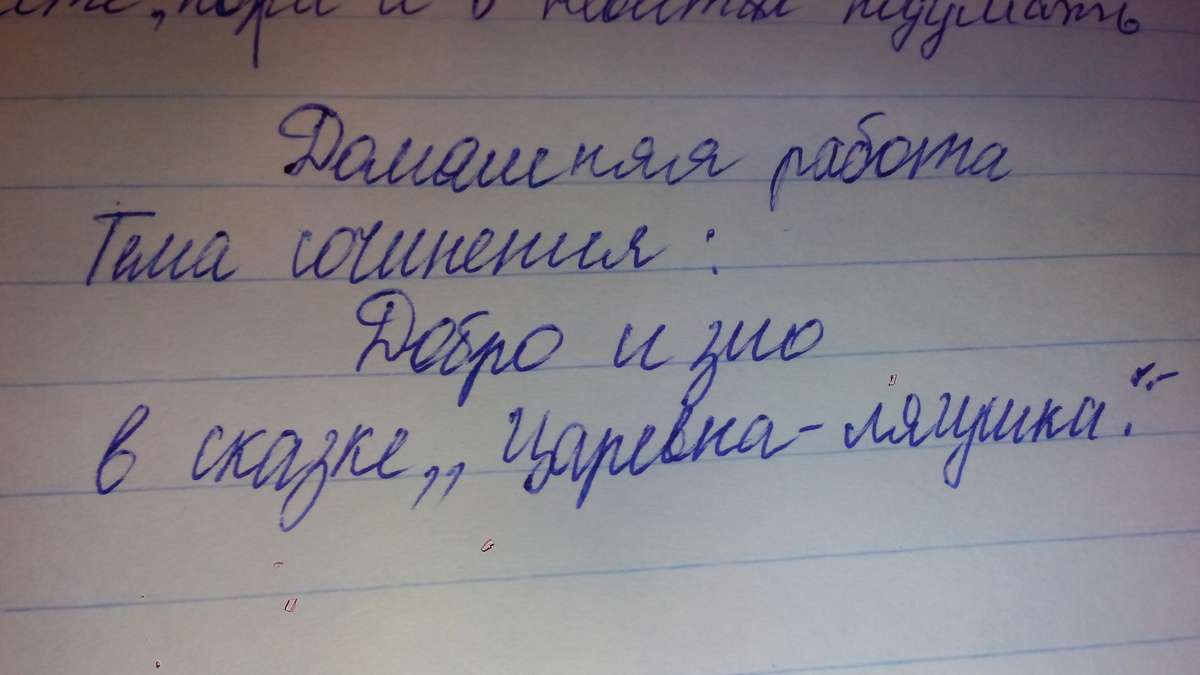 пори и в
Домашняя работа
Тема сочинения:
Добро и зло
в сказке „Царевна-лягушка."